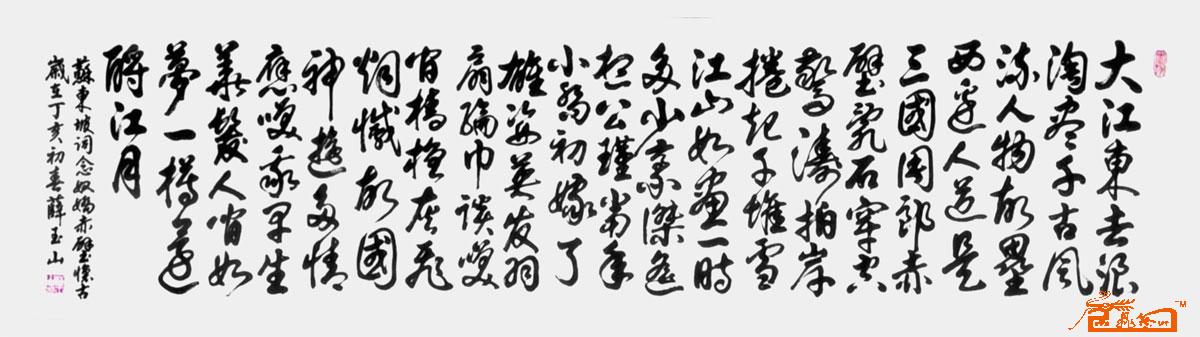 大江東去浪
淘盡千古風
流人物故壘
西邊人道是
三國周郎赤
壁亂石穿空
驚濤拍岸
捲起千堆雪
江山如畫一時
多少豪傑遙
想公瑾當年
小喬初嫁了
雄姿英发羽
扇綸巾談笑
间檣櫓灰飛
烟滅故國
神遊多情
應笑我早生
華髮人间如
夢一樽還
酹江月
蘇東坡词念奴嬌赤壁懷古
歲在丁亥初春薛玉山